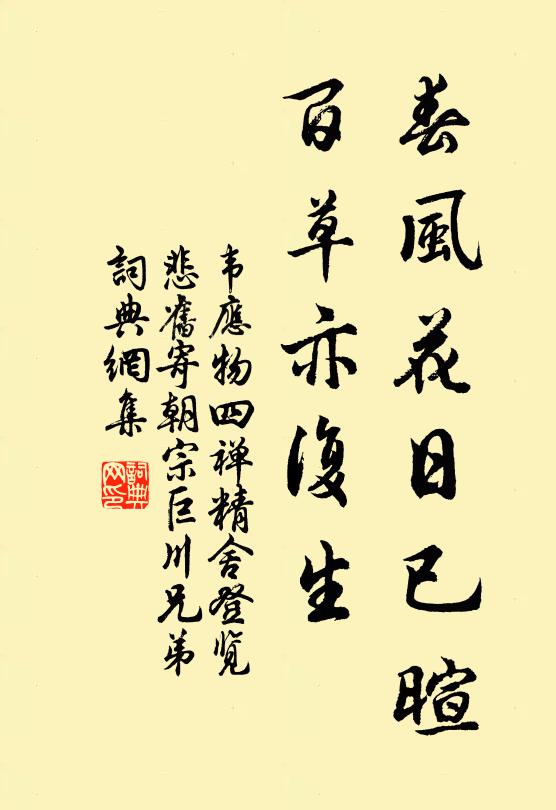 春風花日已暄
百草亦復生
韦應物四禅精舍登览
悲舊寄朝宗巨川兄弟
詞典網集
詞典网印